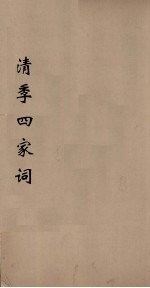 清季四家词